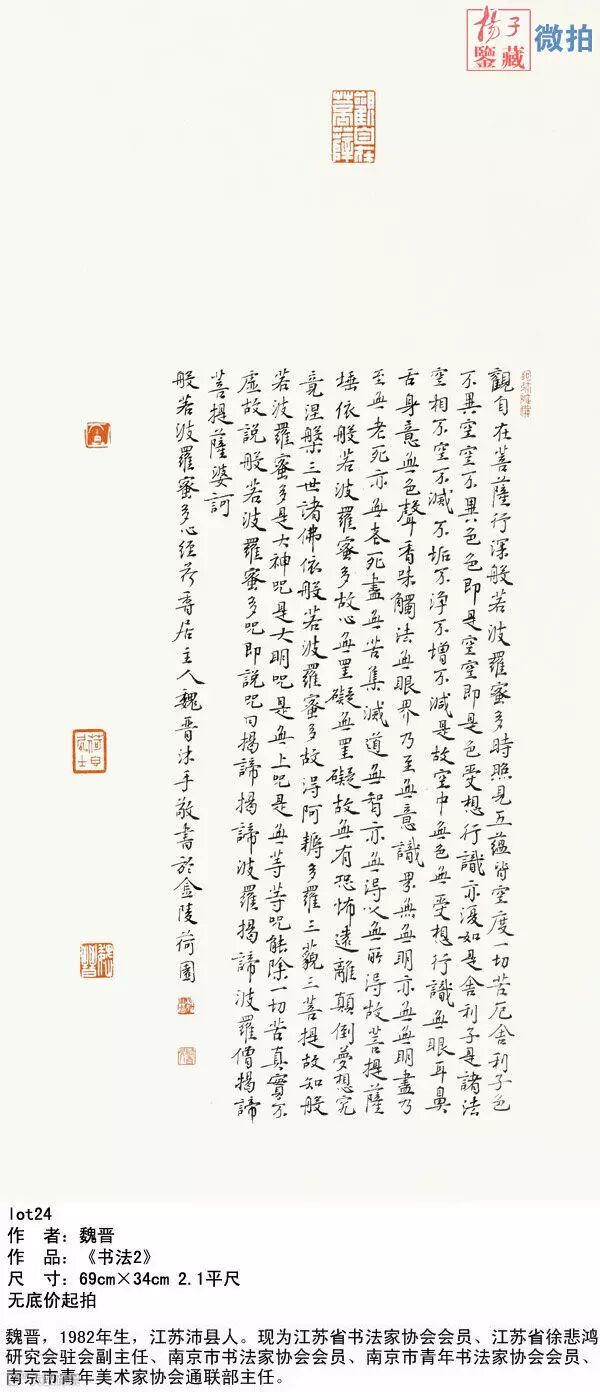 揚子
鑒藏
微拍
觀自在
菩薩
觀自在菩薩行深般若波羅蜜多時照見五蘊皆空度一切苦厄舍利子色
不異空空不異色色即是空空即是色受想行識亦復如是舍利子是諸法
空相不空不減不垢不淨不增不減是故空中無色無受想行識無眼耳鼻
舌身意無色聲香味觸法無眼界乃至無意識界無無明亦無無明盡乃
至無老死亦無老死盡無苦集滅道無智亦無得以無所得故菩提薩
埵依般若波羅蜜多故心無罣礙無罣礙故無有恐怖遠離顛倒夢想究
竟涅槃三世諸佛依般若波羅蜜多故得阿耨多羅三藐三菩提故知般
若波羅蜜多是大神呪是大明呪是無上呪是無等等呪能除一切苦真實不
虛故說般若波羅蜜多呪即說呪曰揭諦揭諦波羅揭諦波羅僧揭諦
菩提薩婆訶
般若波羅蜜多心經荷香居主人魏晉沐手敬書於金陵荷園
lot24
作 者：魏晋
作 品：《书法2》
尺 寸：69cm×34cm 2.1平尺
无底价起拍
魏晋，1982年生，江苏沛县人。现为江苏省书法家协会会员、江苏省徐悲鸿
研究会驻会副主任、南京市书法家协会会员、南京市青年书法家协会会员、
南京市青年美术家协会通联部主任。